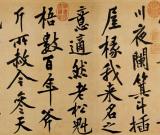 川夜闌箕斗插
屋椽我來名之
意適然老松魁
梧數百年斧
斤所赦今參天